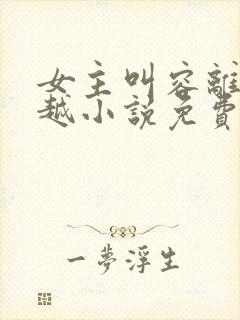 女主叫容離
越小說免費
一夢浮生